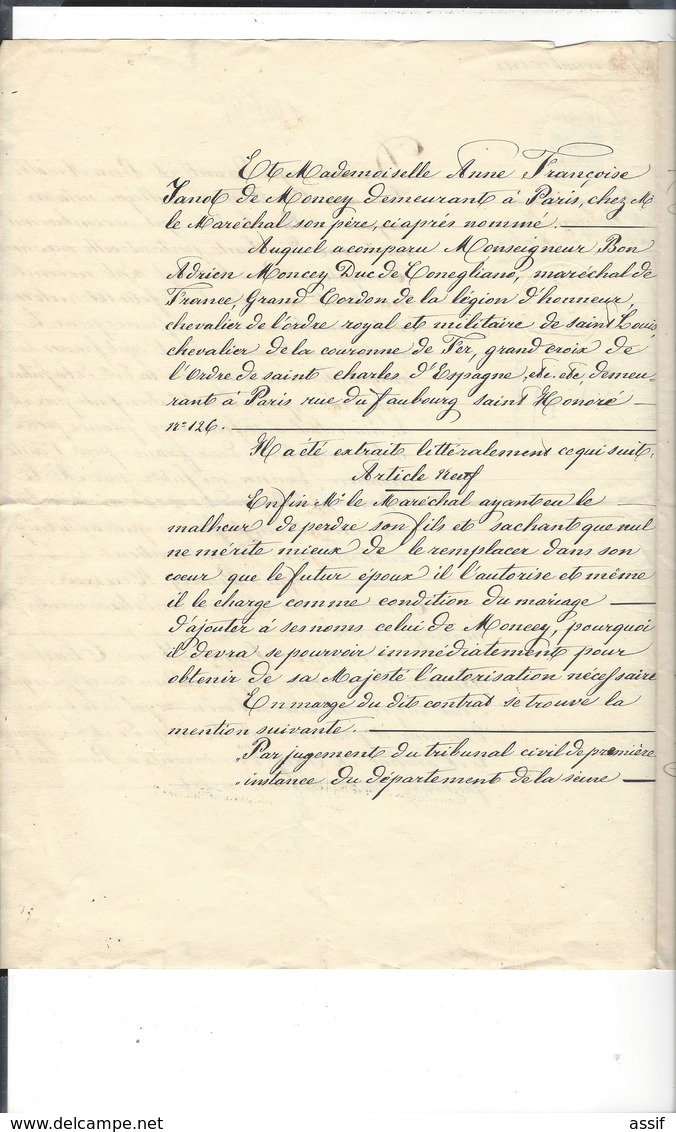 Et Mademoiselle Anne Françoise
Janot de Moncey demeurant à Paris, chez Mr
le Maréchal son père, ci après nommé.
Auquel a comparu Monseigneur Bon
Adrien Moncey Duc de Conegliano, maréchal de
France, Grand Cordon de la légion d'honneur,
chevalier de l'ordre royal et militaire de saint Louis
chevalier de la couronne de Fer, grand croix de
l'Ordre de saint charles d'Espagne, etc. etc, demeu-
rant à Paris rue du faubourg saint Honoré
no 126.
Il a été extrait littéralement ce qui suit:
Article neuf
Enfin Mr le Maréchal ayant eu le
malheur de perdre son fils et sachant que nul
ne mérite mieux de le remplacer dans son
coeur que le futur époux il l'autorise et même
il le charge comme condition du mariage
d'ajouter à ses noms celui de Moncey, pourquoi
il devra se pourvoir immédiatement pour
obtenir de sa Majesté l'autorisation nécessaire
En marge du dit contrat se trouve la
mention suivante.
"Par jugement du tribunal civil de première
"instance du département de la seine
assif